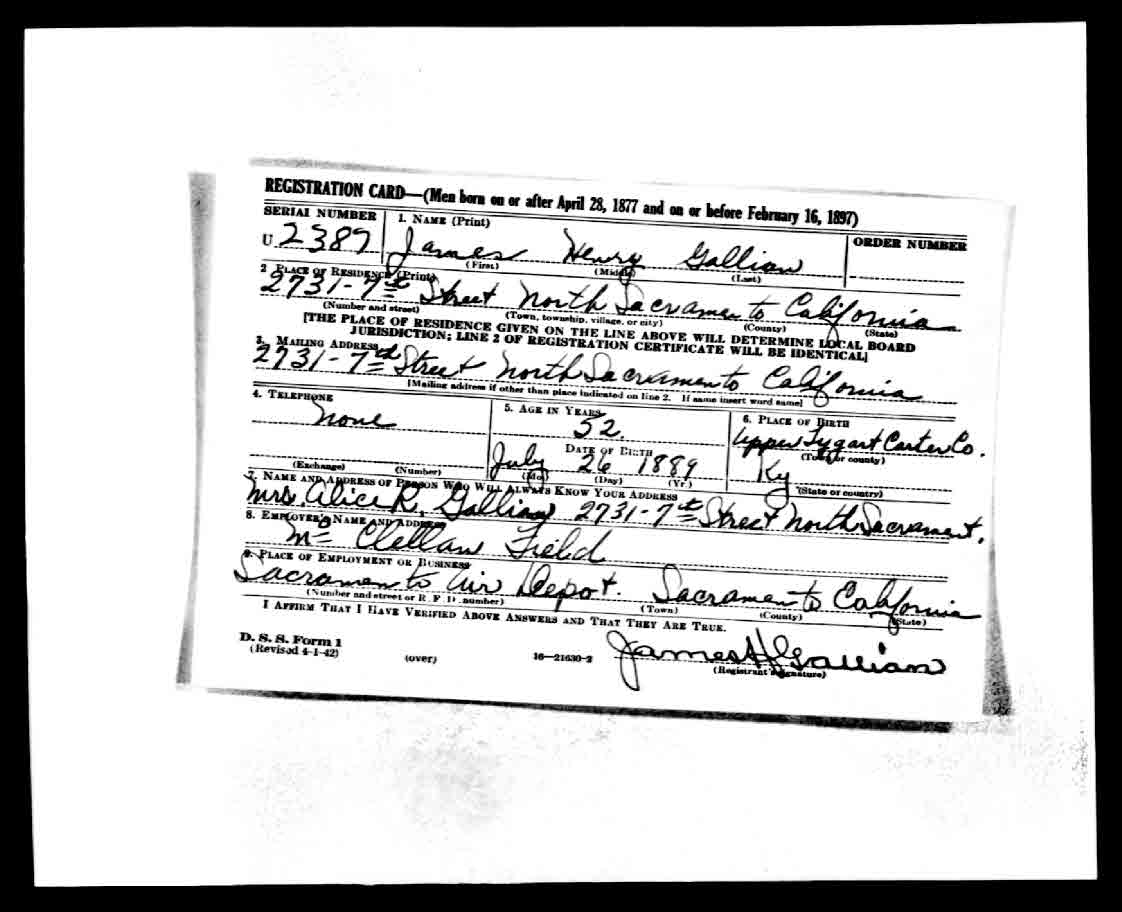 REGISTRATION CARD—(Men born on or after April 28, 1877 and on or before February 16, 1897)
SERIAL NUMBER 1. NAME (Print) ORDER NUMBER
U 2387 James Henry Gallian
(First) (Middle) (Last)
2 PLACE OF RESIDENCE (Print)
2731-7th Street North Sacramento California
(Number and street) (Town, township, village, or city) (County) (State)
[THE PLACE OF RESIDENCE GIVEN ON THE LINE ABOVE WILL DETERMINE LOCAL BOARD
JURISDICTION; LINE 2 OF REGISTRATION CERTIFICATE WILL BE IDENTICAL]
3. MAILING ADDRESS
2731-7th Street North Sacramento California
[Mailing address if other than place indicated on line 2. If same insert word same]
4. TELEPHONE 5. AGE IN YEARS 6. PLACE OF BIRTH
None 52. Upper Tygart Carter Co.
DATE OF BIRTH (Town or county)
July 26 1889 Ky
(Exchange) (Number) (Mo.) (Day) (Yr.) (State or country)
7. NAME AND ADDRESS OF PERSON WHO WILL ALWAYS KNOW YOUR ADDRESS
Mrs. Alice R. Gallian 2731-7th Street North Sacrament.
8. EMPLOYER'S NAME AND ADDRESS
Mc Clellan Field
9. PLACE OF EMPLOYMENT OR BUSINESS
Sacramento Air Depot. Sacramento California
(Number and street or R. F. D. number) (Town) (County) (State)
I AFFIRM THAT I HAVE VERIFIED ABOVE ANSWERS AND THAT THEY ARE TRUE.
D. S. S. Form 1
(Revised 4-1-42) (over) 16—21630-2 James H Gallian
(Registrant's signature)